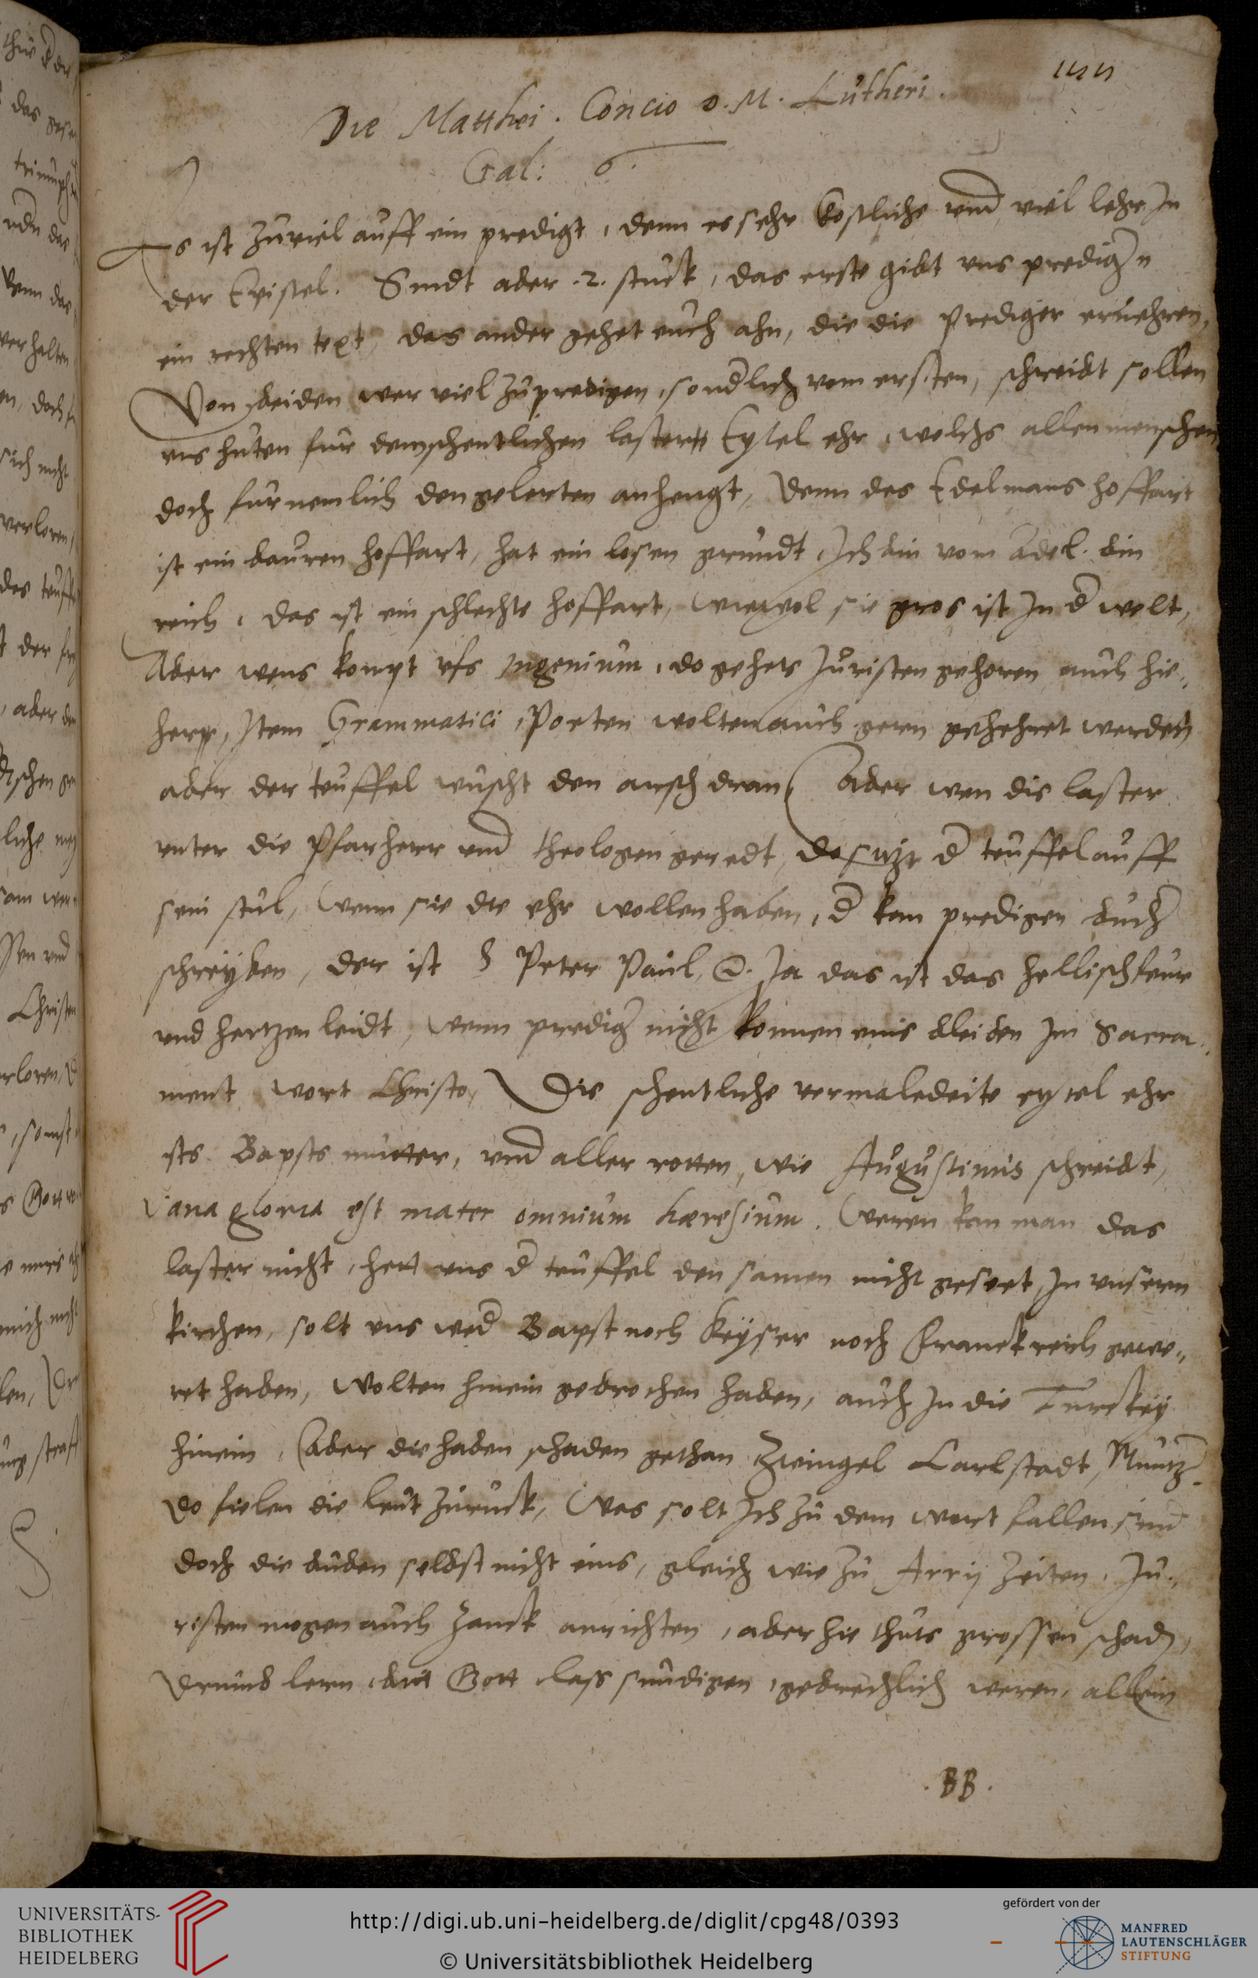 Die Matthei. Concio D. M. Lutheri.
Gal: 6.
Es ist zuviel auff ein predigt, denn es sehr kostliche vnd viel lehre In
der Epistel. Sindt aber .2. stuck, das erste gibt vns predigern
ein rechten text, das ander gehet euch ahn, die die Prediger ernehren,
Von beiden wer viel zupredigen, sonderlich vom ersten, schreibt sollen
vns huten fur dem schentlichen laster Eytel ehr, welchs allen menschen
doch furnemlich den gelerten anhengt, denn des Edelmans hoffart
ist ein bauren hoffart, hat ein losen grundt, Ich bin vom Adel. bin
reich, das ist ein schlechte hoffart, wiewol sie gros ist In d welt,
Aber wens kompt vfs Ingenium, do gehets Juristen gehoren auch hie-
her, Item Grammatici, Poeten wolten auch gern geehret werden
aber der teuffel wuscht den arsch dran, Aber wen dis laster
vnter die Pfarherr vnd theologen geredt, do sitzt d teuffel auff
sein stul, Wenn sie die ehr wollen haben, d kan predigen buch
schreyben, der ist S Peter Paul, @. Ja das ist das hellisch feur
vnd hertzen leidt, wenn predig nicht konnen eins bleiben Im Sacra-
ment wort Christo, Die schentliche vermaledeite eytel ehr
ists Bapsts mutter, vnd aller rotten, wie Augustinus schreibt,
Vana gloria est mater omnium haeresium. Weren kan man das
laster nicht, hett vns d teuffel den samen nicht geseet In vnsern
kirchen, solt vns wed Bapst noch Keyser noch Franckreich gewe-
ret haben, wolten hinein gebrochen haben, auch In die Turckey
hinein, Aber die haben schaden gethan Zwingel Carlstadt, Muntz.
do fielen die leut zuruck, Was solt Ich zu dem wort fallen, sind
doch die buben selbst nicht eins, gleich wie zu Arrij zeiten, Ju-
risten mogen auch zanck anrichten, aber hie thuts grossen schad,
Drumb lern, bitt Gott lass sundigen, gebrechlich weren, allein
.BB.
UNIVERSITÄTS-
BIBLIOTHEK
HEIDELBERG
http://digi.ub.uni-heidelberg.de/diglit/cpg48/0393
© Universitätsbibliothek Heidelberg
gefördert von der
MANFRED
LAUTENSCHLÄGER
STIFTUNG